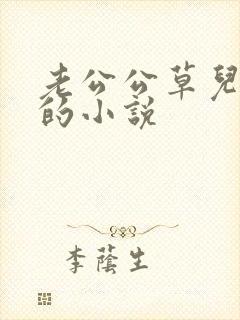 老公公草兒
的小説
李蔭生